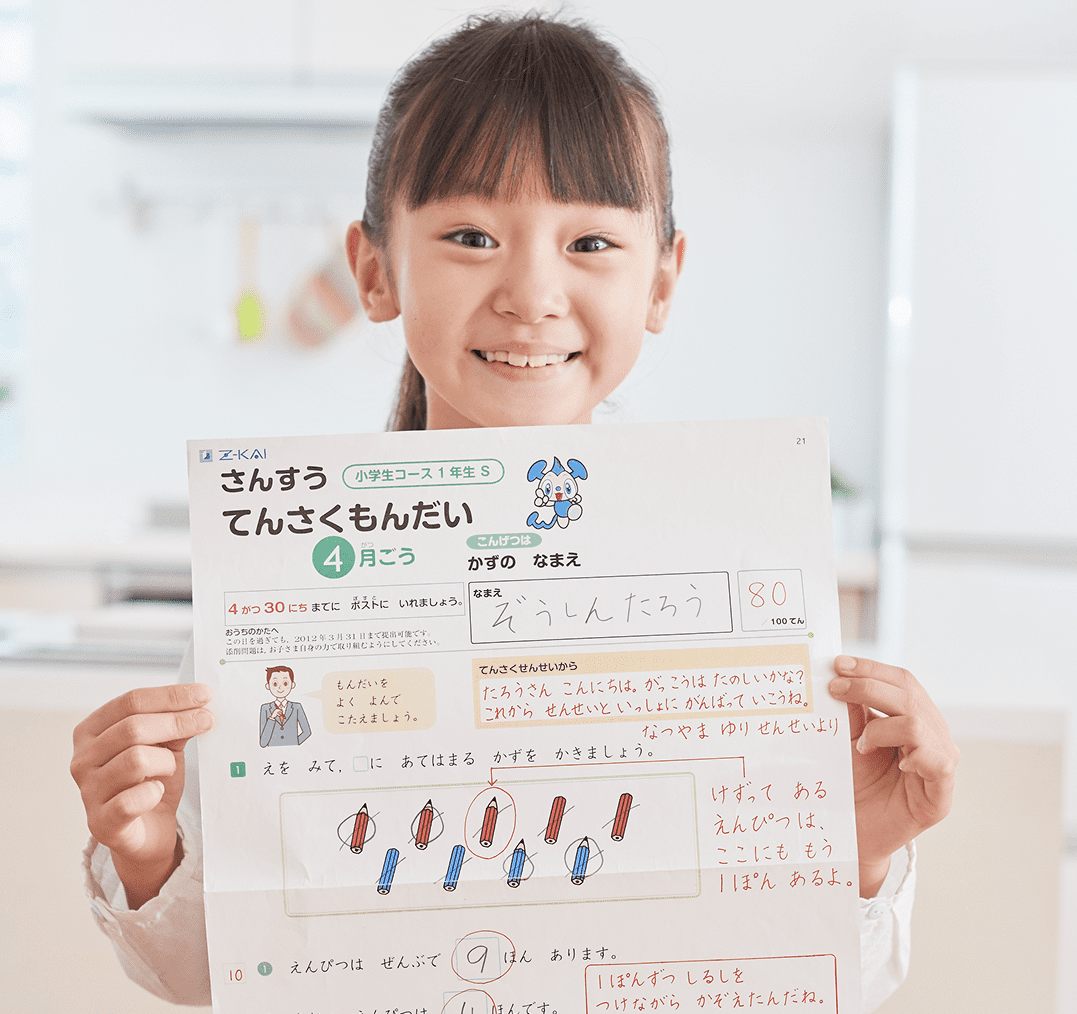 21
Z-KAI
さんすう 小学生コース1年生 S
てんさくもんだい
4月ごう
がつ
こんげつは
かずの なまえ
4がつ30にちまでに ポストに いれましょう。
ぽすと
おうちのかたへ
この日を過ぎても、2012年3月31日まで提出可能です。
添削問題は、お子さま自身の力で取り組むようにしてください。
なまえ
ぞうしんたろう
80
/100てん
もんだいを
よく よんで
こたえましょう。
てんさくせんせいから
たろうさん こんにちは。がっこうは たのしいかな?
これから せんせいと いっしょに がんばって いこうね。
なつやま ゆり せんせいより
1 えを みて、□に あてはまる かずを かきましょう。
けずって ある
えんぴつ は、
ここにも もう
1ぽん あるよ。
10 1 えんぴつは ぜんぶで 9 ほん あります。
1ぽんずつ しるしを
つけながら かぞえたんだね。
えんぴつは
ほんです。